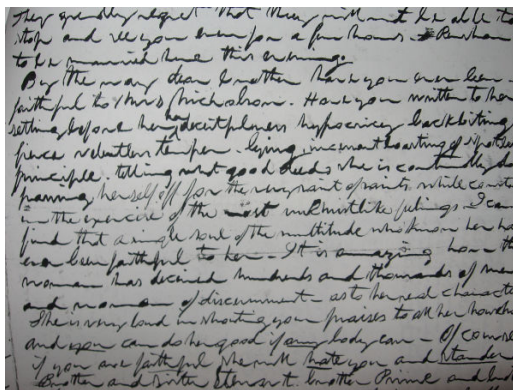 They greatly regret that they will not be able to
stop and see you even for a few hours.
to be married here this evening.
By the way dear brother have you ever been
faithful to Mrs Nicholson. Have you written to her
setting before her her deceitfulness hypocricy backbiting
fierce relentless temper. lying, incessant boasting of spotless
principle. telling what good deeds she is continually
herself off for the very of saints while
in the exercise of the most unChristlike feelings. I
find that a single soul of the multitude who know her
ever been faithful to her. It is amazing how
woman has deceived hundreds and thousands of men
and women of discernment — as to her real
She is very loud in shouting your praises to all her
and you can do her good if any body can — Of course
if you are faithful she will hate you and slander
Brother and Sister Stewart. brother Prime and